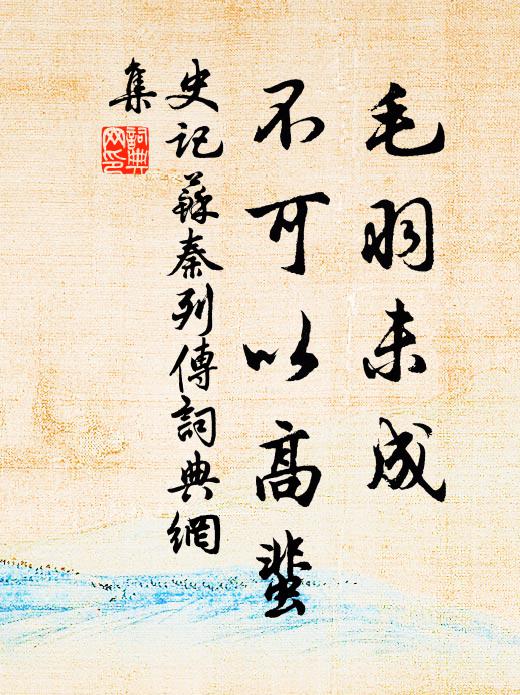 毛羽未成
不可以高蜚
史記蘇秦列傳詞典網
集
詞典
网印